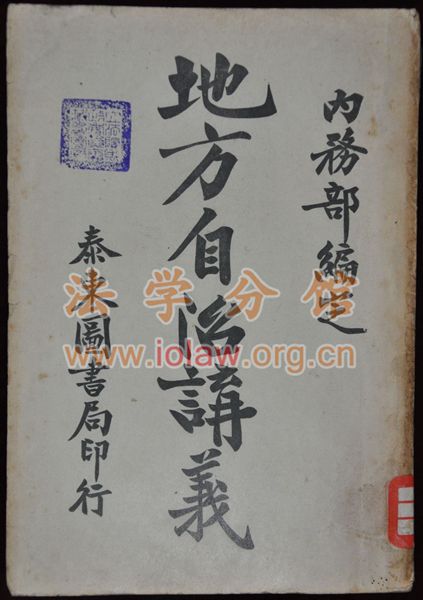 內務部編定
地方自治講義
泰東圖書局印行
法学分馆
www.iolaw.org.cn